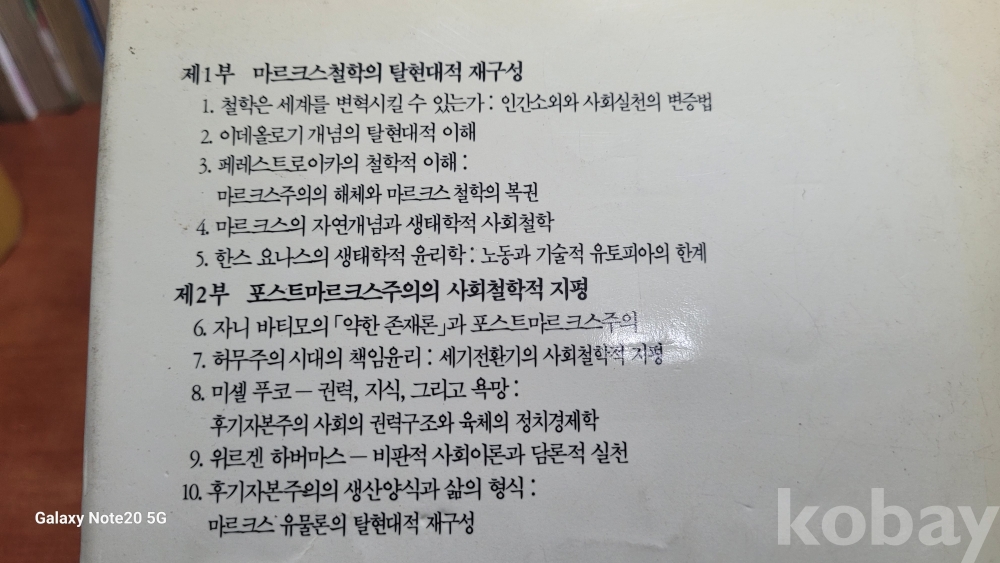 제1부 마르크스철학의 탈현대적 재구성
1. 철학은 세계를 변혁시킬 수 있는가 : 인간소외와 사회실천의 변증법
2. 이데올로기 개념의 탈현대적 이해
3. 페레스트로이카의 철학적 이해 :
마르크스주의의 해체와 마르크스 철학의 복권
4. 마르크스의 자연개념과 생태학적 사회철학
5. 한스 요나스의 생태학적 윤리학 : 노동과 기술적 유토피아의 한계
제2부 포스트마르크스주의의 사회철학적 지평
6. 자니 바티모의 「약한 존재론」과 포스트마르크스주의
7. 허무주의 시대의 책임윤리 : 세기전환기의 사회철학적 지평
8. 미셸 푸코 — 권력, 지식, 그리고 욕망 :
후기자본주의 사회의 권력구조와 육체의 정치경제학
9. 위르겐 하버마스 — 비판적 사회이론과 담론적 실천
10. 후기자본주의의 생산양식과 삶의 형식 :
마르크스 유물론의 탈현대적 재구성
Galaxy Note20 5G
kobay